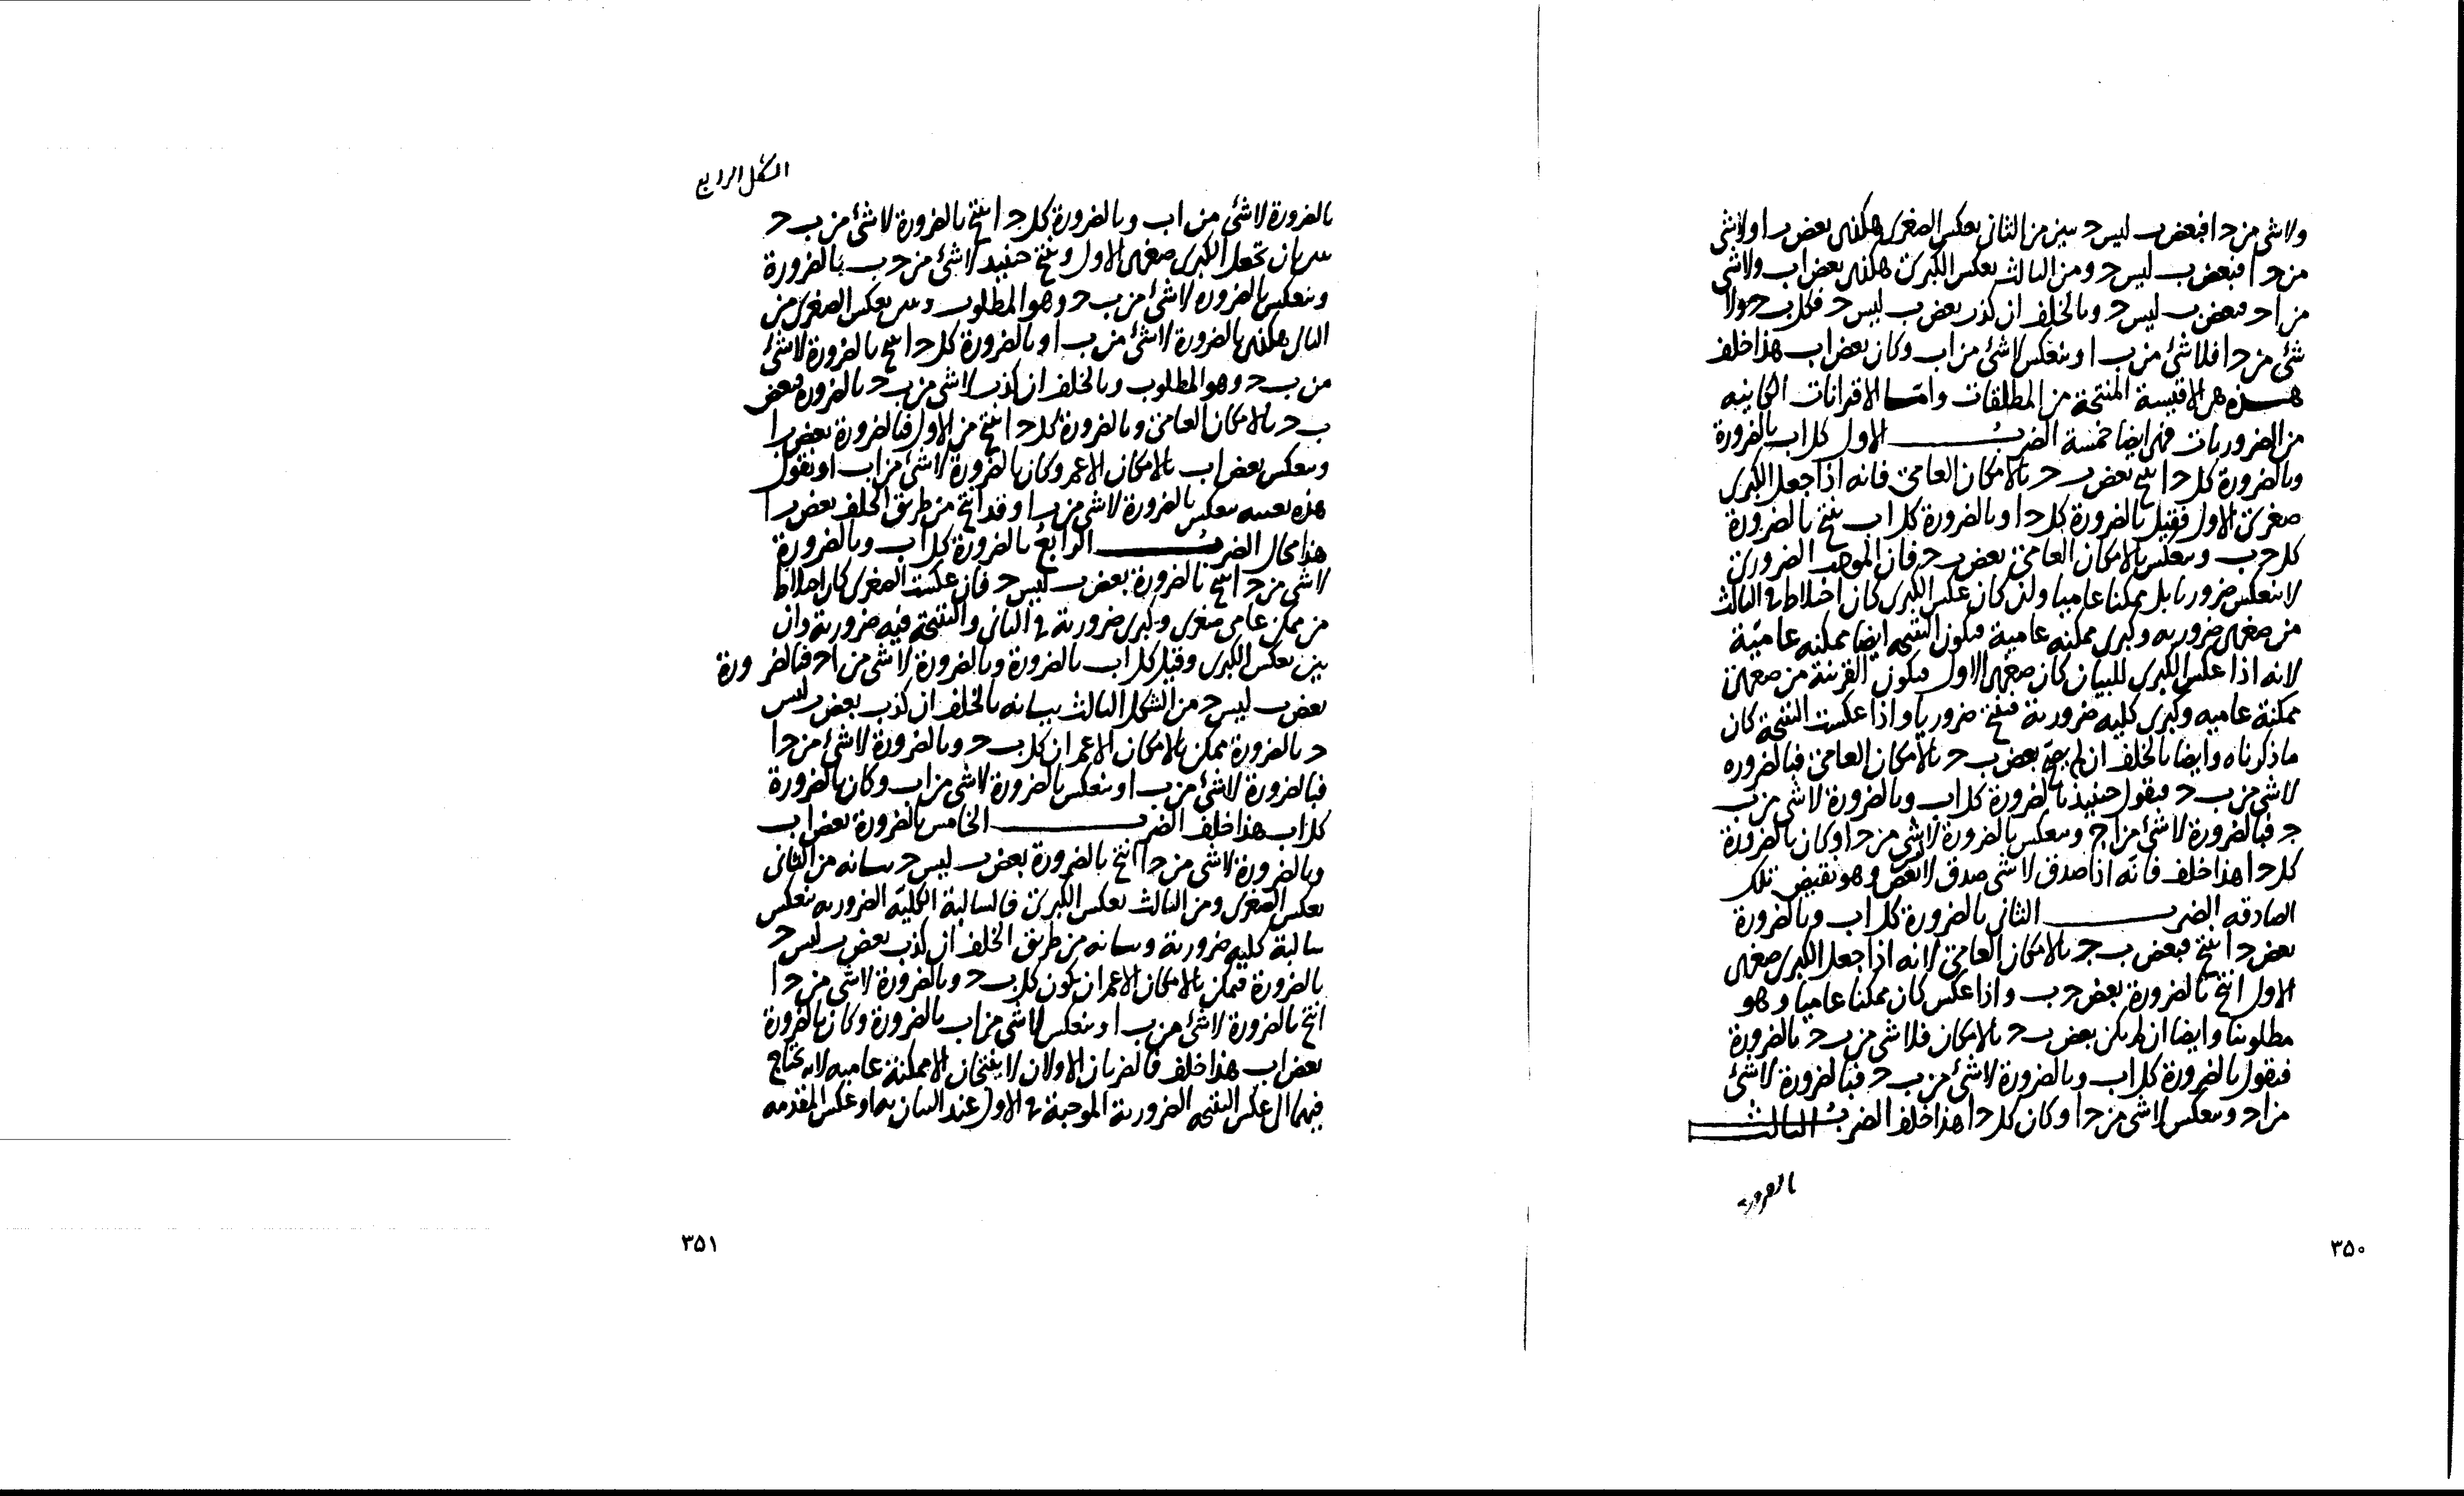 ولا شئ من حـ ا فبعض ب ليس حـ يبين من الثانى بعكس الصغرى هكذى بعض ب ا ولا شئ
من حـ ا فبعض ب ليس حـ ومن الثالث بعكس الكبرى هكذى بعض ا ب ولا شئ
من ا حـ فبعض ب ليس حـ وبالخلف ان كذب بعض ب ليس حـ فكل ب حـ ولا
شئ من حـ ا فلا شئ من ب ا وينعكس لا شئ من ا ب وكان بعض ا ب هذا خلف
هذه هى الاقيسة المنتجة من المطلقات واما الاقترانات الكاينه
من الضروريات فهى ايضا خمسة الضرب الاول كل ا ب بالضرورة
وبالضرورة كل حـ ا ينتج بعض ب حـ بالامكان العامى فانه اذا جعل الكبرى
صغرى الاول فقيل بالضرورة كل حـ ا وبالضرورة كل ا ب ينتج بالضرورة
كل حـ ب وينعكس بالامكان العامى بعض ب حـ فان الموجب الضرورى
لا ينعكس ضروريا بل ممكنا عاميا ولئن كان عكس الكبرى كان اختلاط فى الثالث
من صغرى ضروريه وكبرى ممكنه عامية فيكون النتيجه ايضا ممكنه عاميّة
لانه اذا عكس الكبرى للبيان كان صغرى الاول فيكون القرينة من صغرى
ممكنة عاميه وكبرى كليه ضرورية فينتج ضروريا واذا عكست النتيجة كان
ما ذكرناه وايضا بالخلف ان لم يصح بعض ب حـ بالامكان العامى فبالضروره
لا شئ من ب حـ فيقول حينئذ بالضرورة كل ا ب وبالضرورة لا شئ من ب
جـ فبالضرورة لا شئ من ا ج وينعكس بالضرورة لا شئ من حـ ا وكان بالضرورة
كل حـ ا هذا خلف فانه اذا صدق لا شئ صدق لا بعض وهو نقيض تلك
الصادقه الضرب الثانى بالضرورة كل ا ب وبالضرورة
بعض حـ ا ينتج فبعض ب جـ بالامكان العامى لانه اذا جعل الكبرى صغرى
الاول انتج بالضرورة بعض حـ ب واذا عكس كان ممكنا عاميا وهو
مطلوبنا وايضا ان لم يكن بعض ب حـ بالامكان فلا شئ من ب حـ بالضرورة
فيقول بالضرورة كل ا ب وبالضرورة لا شئ من ب حـ فبالضرورة لا شئ
من ا حـ وينعكس لا شئ من حـ ا وكان كل حـ ا هذا خلف الضرب الثالث
بالضرورة
٣٥٠
الشكل الرابع
بالضرورة لا شئ من ا ب وبالضرورة كل حـ ا ينتج بالضرورة لا شئ من ب حـ
يبين بان تجعل الكبرى صغرى الاول وينتج حينئذ لا شئ من حـ ب بالضرورة
وينعكس بالضروره لا شئ من ب حـ وهو المطلوب ويبين بعكس الصغرى من
الثانى هكذى بالضرورة لا شئ من ب ا وبالضرورة كل حـ ا ينتج بالضرورة لا شئ
من ب حـ وهو المطلوب وبالخلف ان كذب لا شئ من ب حـ بالضروره فبعض
ب حـ بالامكان العامى وبالضرورة كل حـ ا ينتج من الاول فبالضرورة بعض ب ا
وينعكس بعض ا ب بالامكان الاعم وكان بالضرورة لا شئ من ا ب او نقول
هذه بعينه ينعكس بالضرورة لا شئ من ب ا وقد انتج من طريق الخلف بعض ب ا
هذا محال الضرب الرابع بالضرورة كل ا ب وبالضرورة
لا شئ من حـ ا ينتج بالضرورة بعض ب ليس حـ فان عكست الصغرى كان اختلاط
من ممكن عامى صغرى وكبرى ضرورية فى الثانى والنتيجة فيه ضرورية وان
بين بعكس الكبرى وقيل كل ا ب بالضرورة وبالضرورة لا شئ من ا حـ فبالضرورة
بعض ب ليس حـ من الشكل الثالث بيانه بالخلف ان كذب بعض ب ليس
حـ بالضرورة ممكن بالامكان الاعم ان كل ب حـ وبالضرورة لا شئ من حـ ا
فبالضرورة لا شئ من ب ا وينعكس بالضرورة لا شئ من ا ب وكان بالضرورة
كل ا ب هذا خلف الضرب الخامس بالضرورة بعض ا ب
وبالضرورة لا شئ من حـ ا انتج بالضرورة بعض ب ليس حـ بيانه من الثانى
بعكس الصغرى ومن الثالث بعكس الكبرى فالسالبة الكلية الضروريه ينعكس
سالبة كليه ضرورية وبيانه من طريق الخلف ان كذب بعض ب ليس حـ
بالضرورة فيمكن بالامكان الاعم ان يكون كل ب حـ وبالضرورة لا شئ من حـ ا
انتج بالضرورة لا شئ من ب ا وينعكس لا شئ من ا ب بالضرورة وكان بالضرورة
بعض ا ب هذا خلف فالضربان الاولان لا ينتجان الا ممكنة عاميه لانه يحتاج
فيهما الى عكس النتيجه الضرورية الموجبة فى الاول عند البيان به او عكس المقدمه
٣٥١